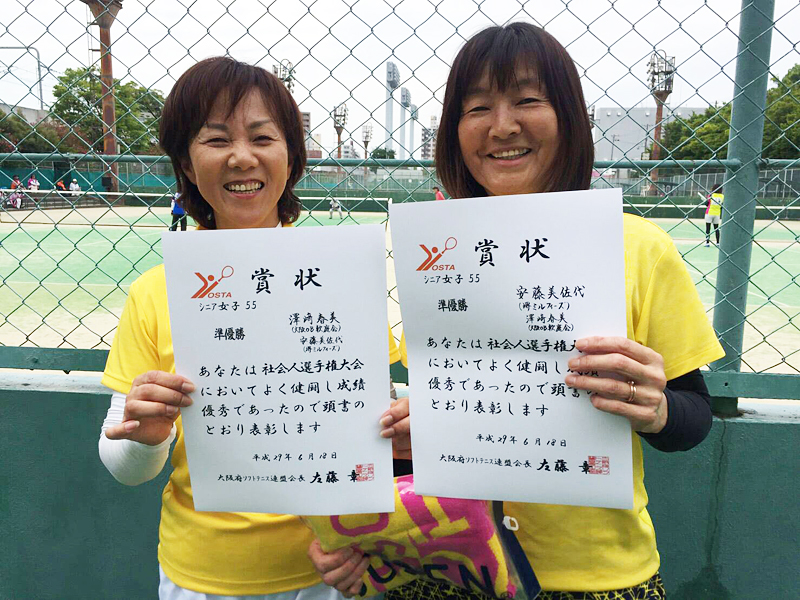 OSTA
賞状
シニア女子 55
準優勝
澤崎春美
(大阪OB軟庭会)
安藤美佐代
(堺ミルフィーズ)
あなたは社会人選手権大会
においてよく健闘し成績
優秀であったので頭書の
とおり表彰します
平成29年6月18日
大阪府ソフトテニス連盟会長 左藤 章
OSTA
賞状
シニア女子 55
準優勝
安藤美佐代
(堺ミルフィーズ)
澤崎春美
(大阪OB軟庭会)
あなたは社会人選手権大
においてよく健闘し成績
優秀であったので頭書
とおり表彰します
平成29年6月18日
大阪府ソフトテニス連盟会長 左藤 章